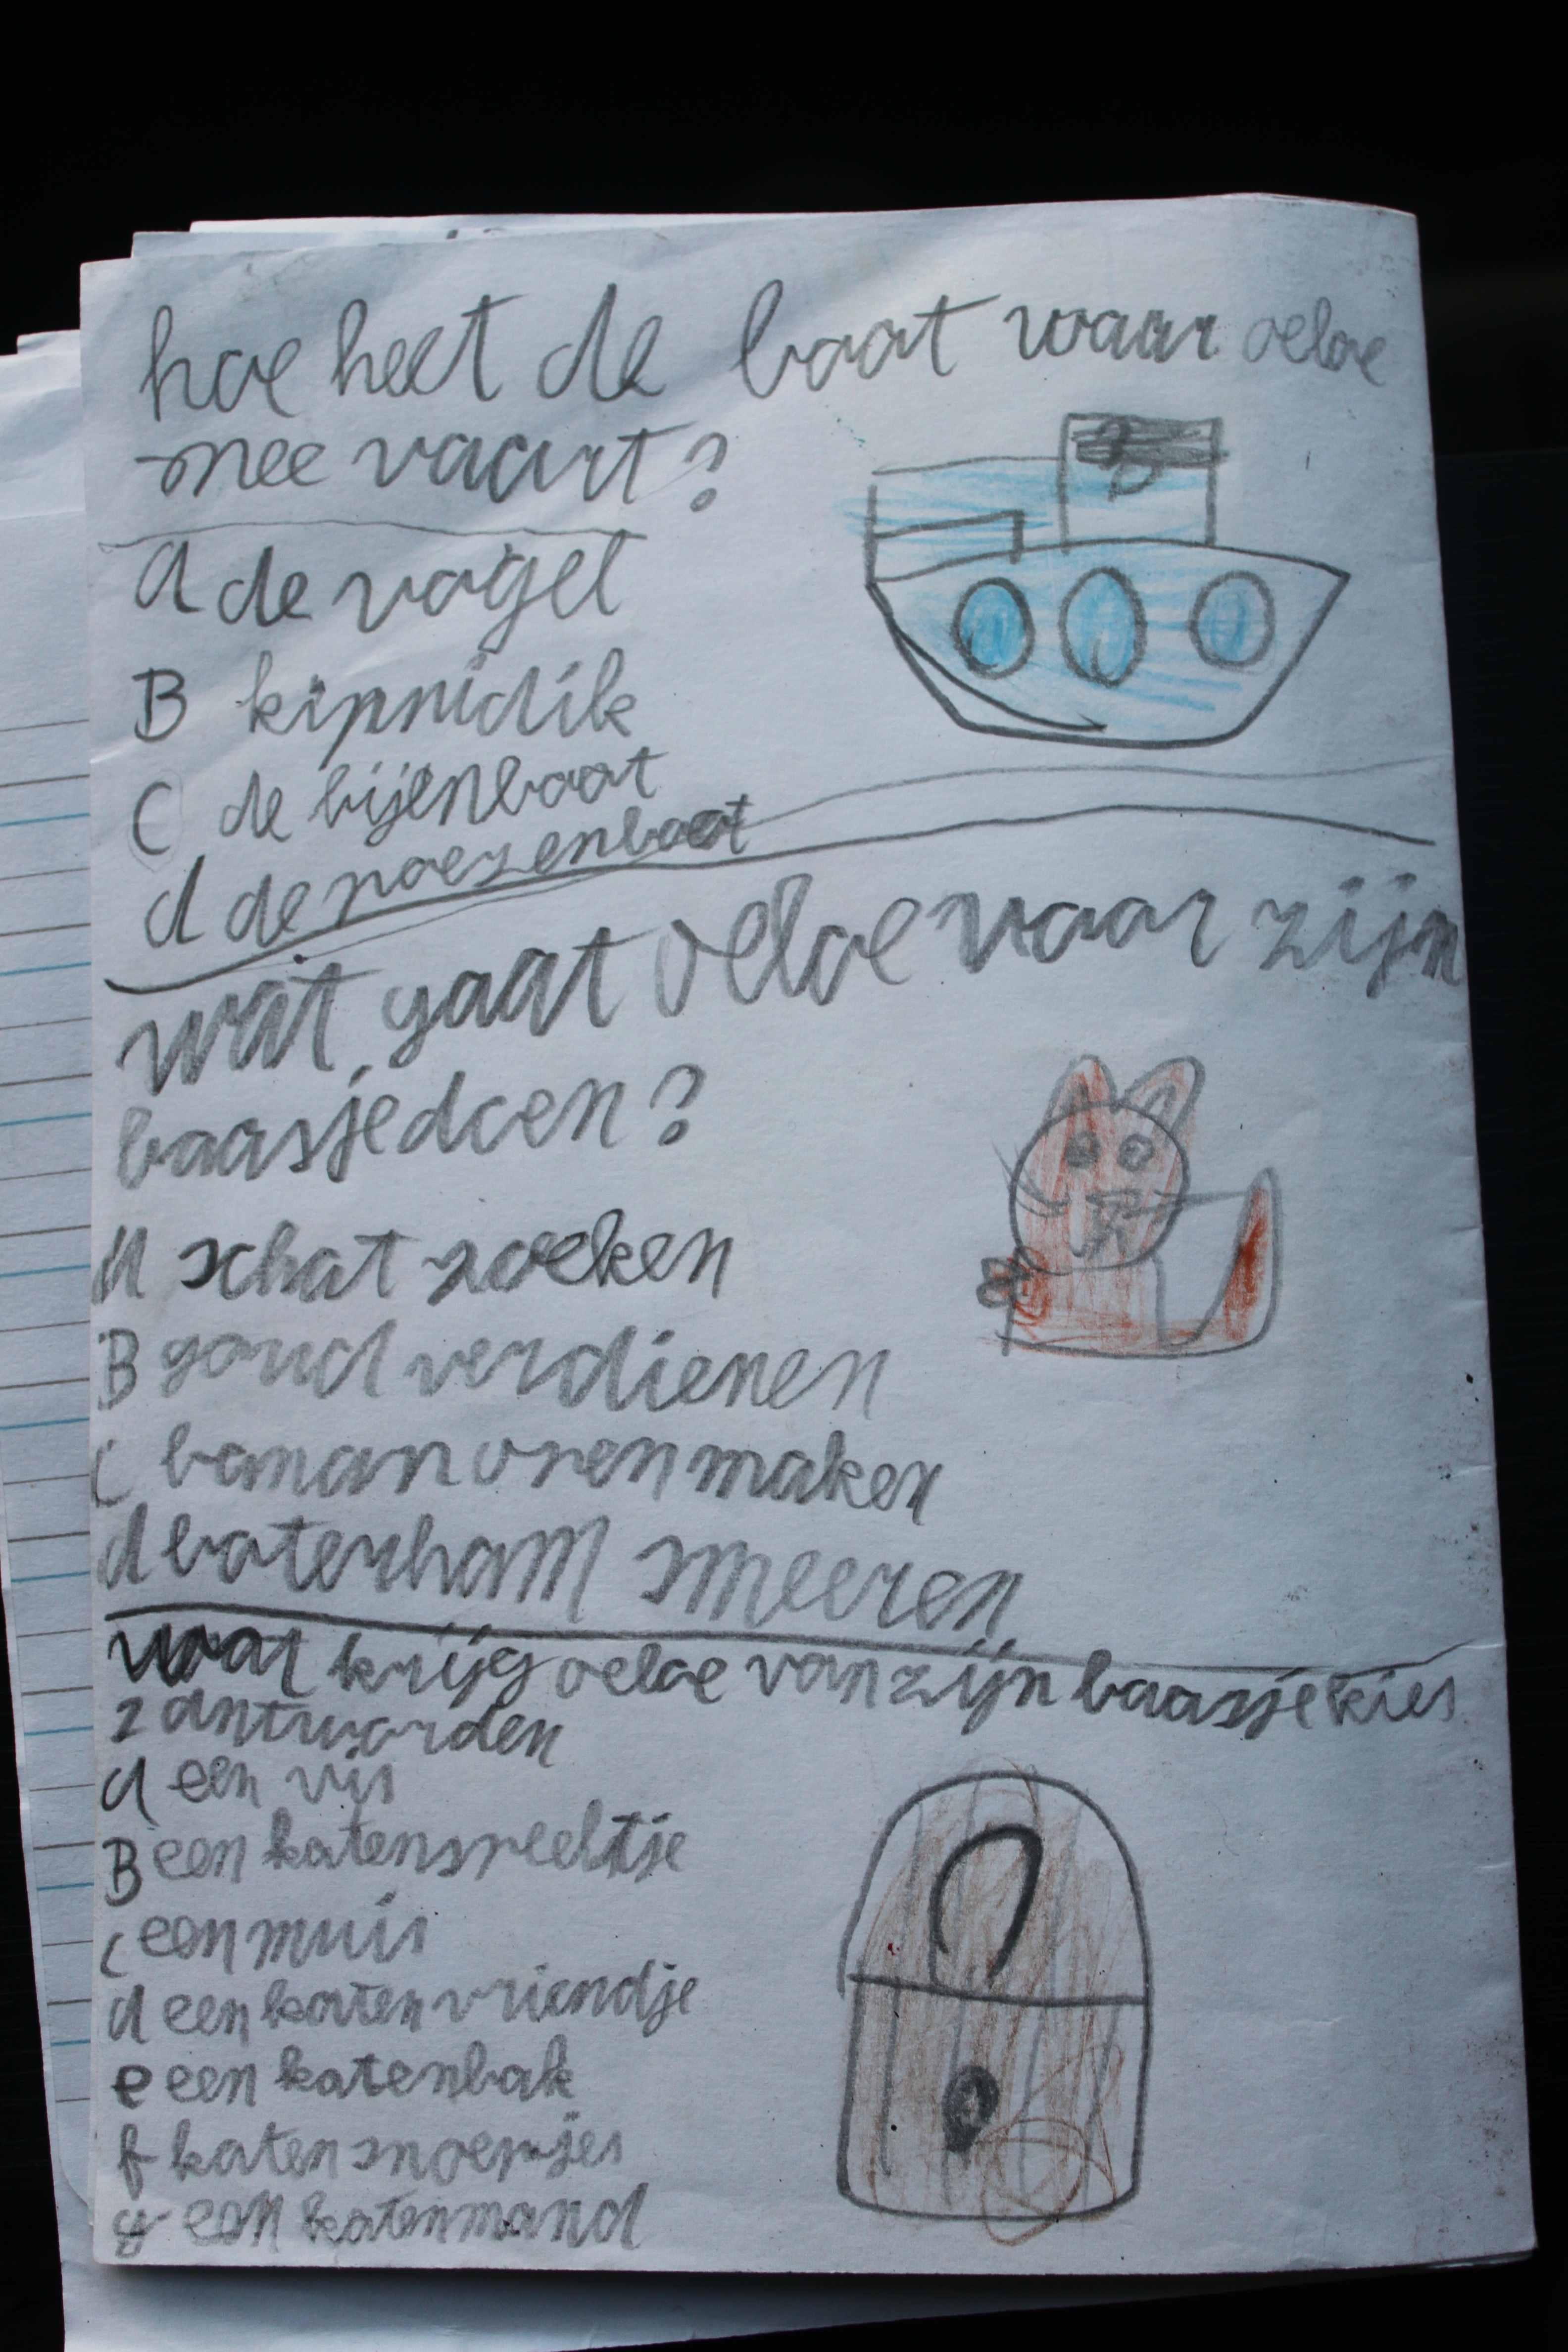 hoe heet de boot waar oeloe
mee vaart?
A de vogel
B kipnidik
C de bijenboot
d de poezenboot
wat gaat oeloe voor zijn
baasje doen?
A schat zoeken
B goud verdienen
C banan oren maken
d boterham smeeren
wat krijg oeloe van zijn baasje kies
2 antworden
A een vis
B een katenspeeltje
C een muis
d een katen vriendje
e een katenbak
f katen snoepjes
g een katenmand